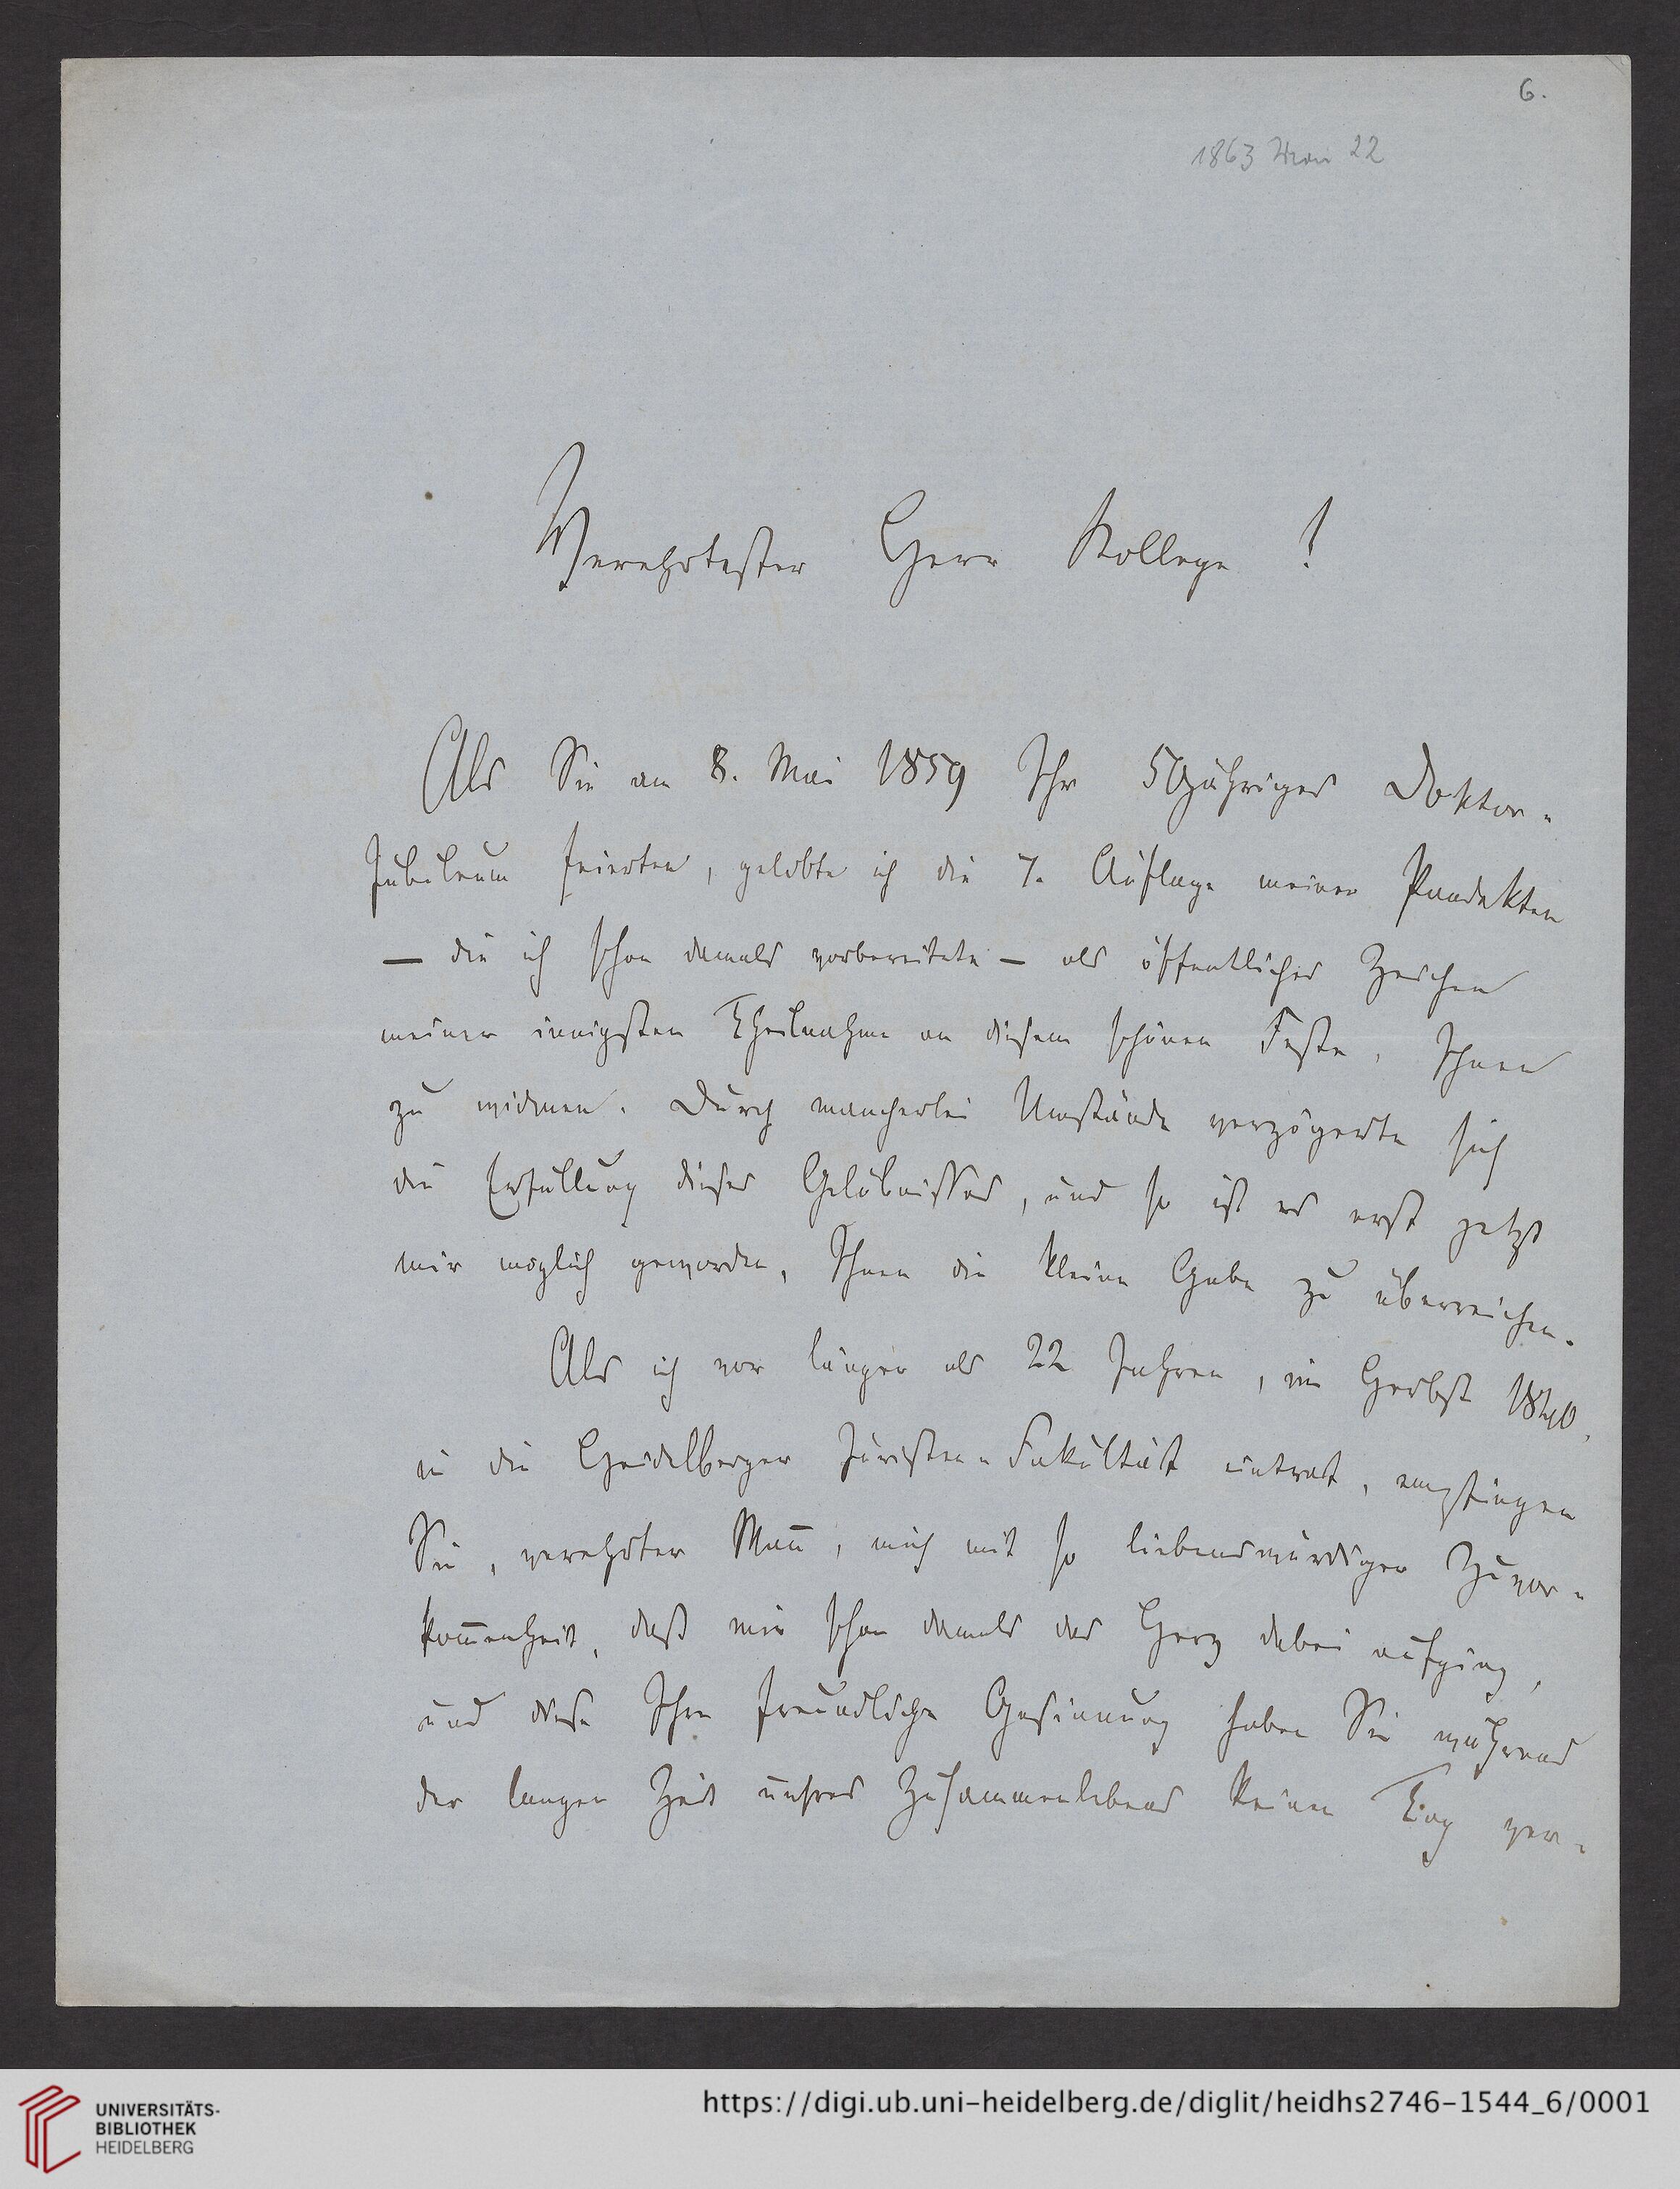 6.
1863 Mai 22
Verehrtester Herr Kollege !
Als Sie am 8. Mai 1859 Ihr 50jähriges Doktor-
Jubileum feierten, gelobte ich die 7. Auflage meiner Pandekten
— die ich schon damals vorbereitete — als öffentliches Zeichen
meiner innigsten Theilnahme an diesem schönen Feste, Ihnen
zu widmen. Durch mancherlei Umstände verzögerte sich
die Erfüllung dieses Gelöbnisses, und so ist es erst jetzt
mir möglich geworden, Ihnen die kleine Gabe zu überreichen.
Als ich vor länger als 22 Jahren, im Herbst 1840,
in die Heidelberger Juristen-Fakultät eintrat, empfingen
Sie, verehrter Mañ, mich mit so liebenswürdiger Zuvor-
kom̄enheit, daß mir schon damals das Herz dabei aufging,
und diese Ihre freundliche Gesinnung haben Sie während
der langen Zeit unsres Zusammenlebens keinen Tag ver-
UNIVERSITÄTS-
BIBLIOTHEK
HEIDELBERG
https://digi.ub.uni-heidelberg.de/diglit/heidhs2746-1544_6/0001